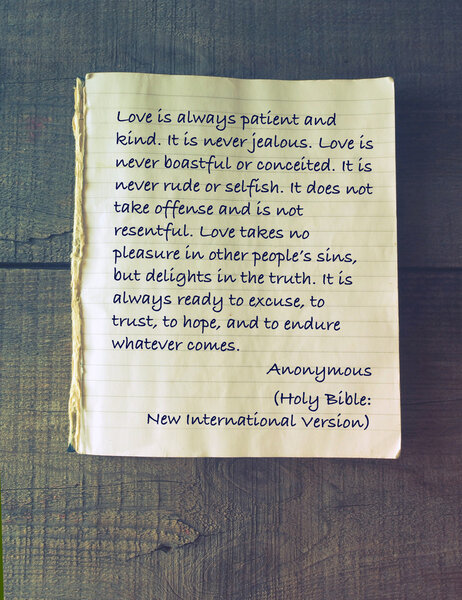 Love is always patient and
kind. It is never jealous. Love is
never boastful or conceited. It is
never rude or selfish. It does not
take offense and is not
resentful. Love takes no
pleasure in other people's sins,
but delights in the truth. It is
always ready to excuse, to
trust, to hope, and to endure
whatever comes.
Anonymous
(Holy Bible:
New International Version)